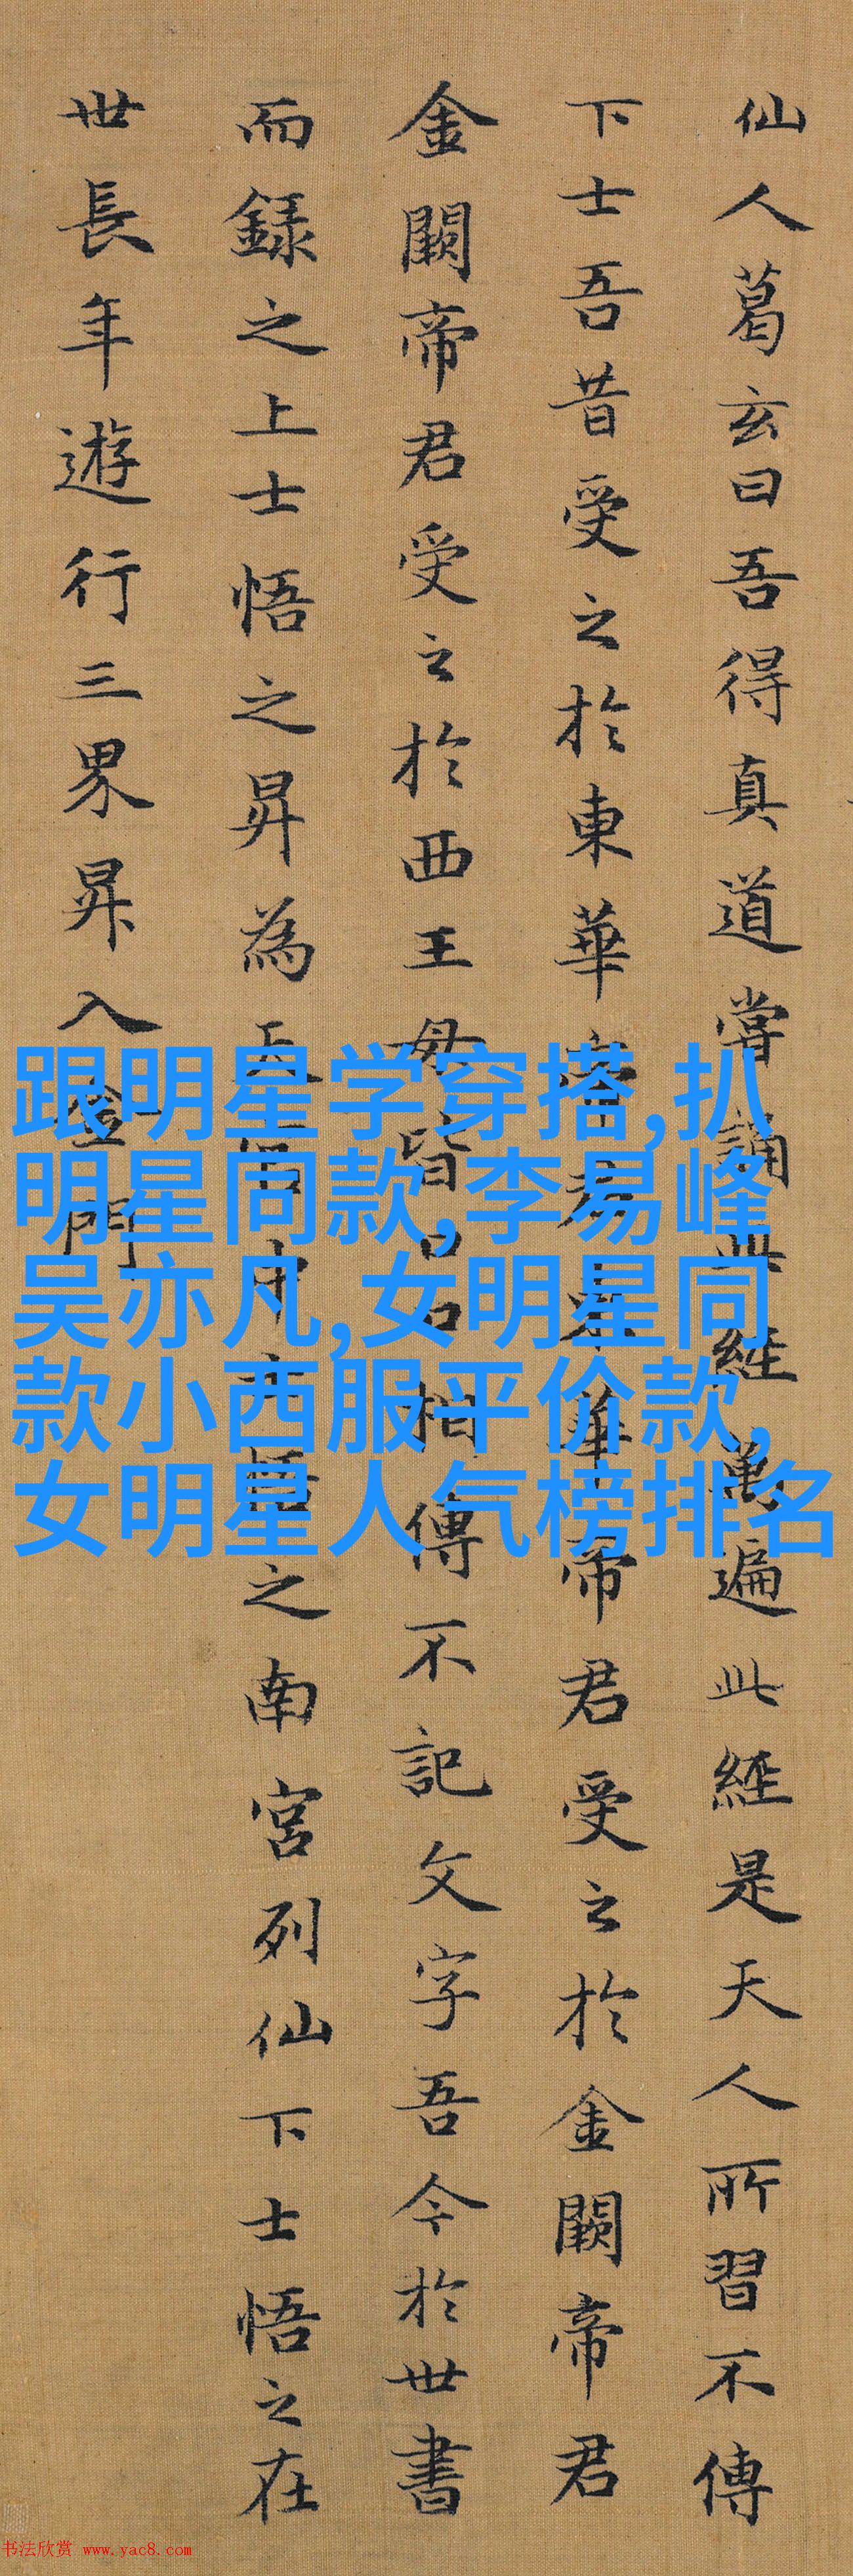 仙人葛玄曰吾得真道嘗誦此經萬遍此經是天人所習不傳
下士吾昔受之於東華帝君東華帝君受之於金闕帝君
金闕帝君受之於西王母皆口口相傳不記文字吾今於世書
而録之上士悟之昇為天中士悟之南宮列仙下士悟之在
世長年遊行三界昇入金門
跟明星学穿搭,扒
明星同款,李易峰
吴亦凡,女明星同
款小西服平价款,
女明星人气榜排名
书法欣赏 www.yac8.com